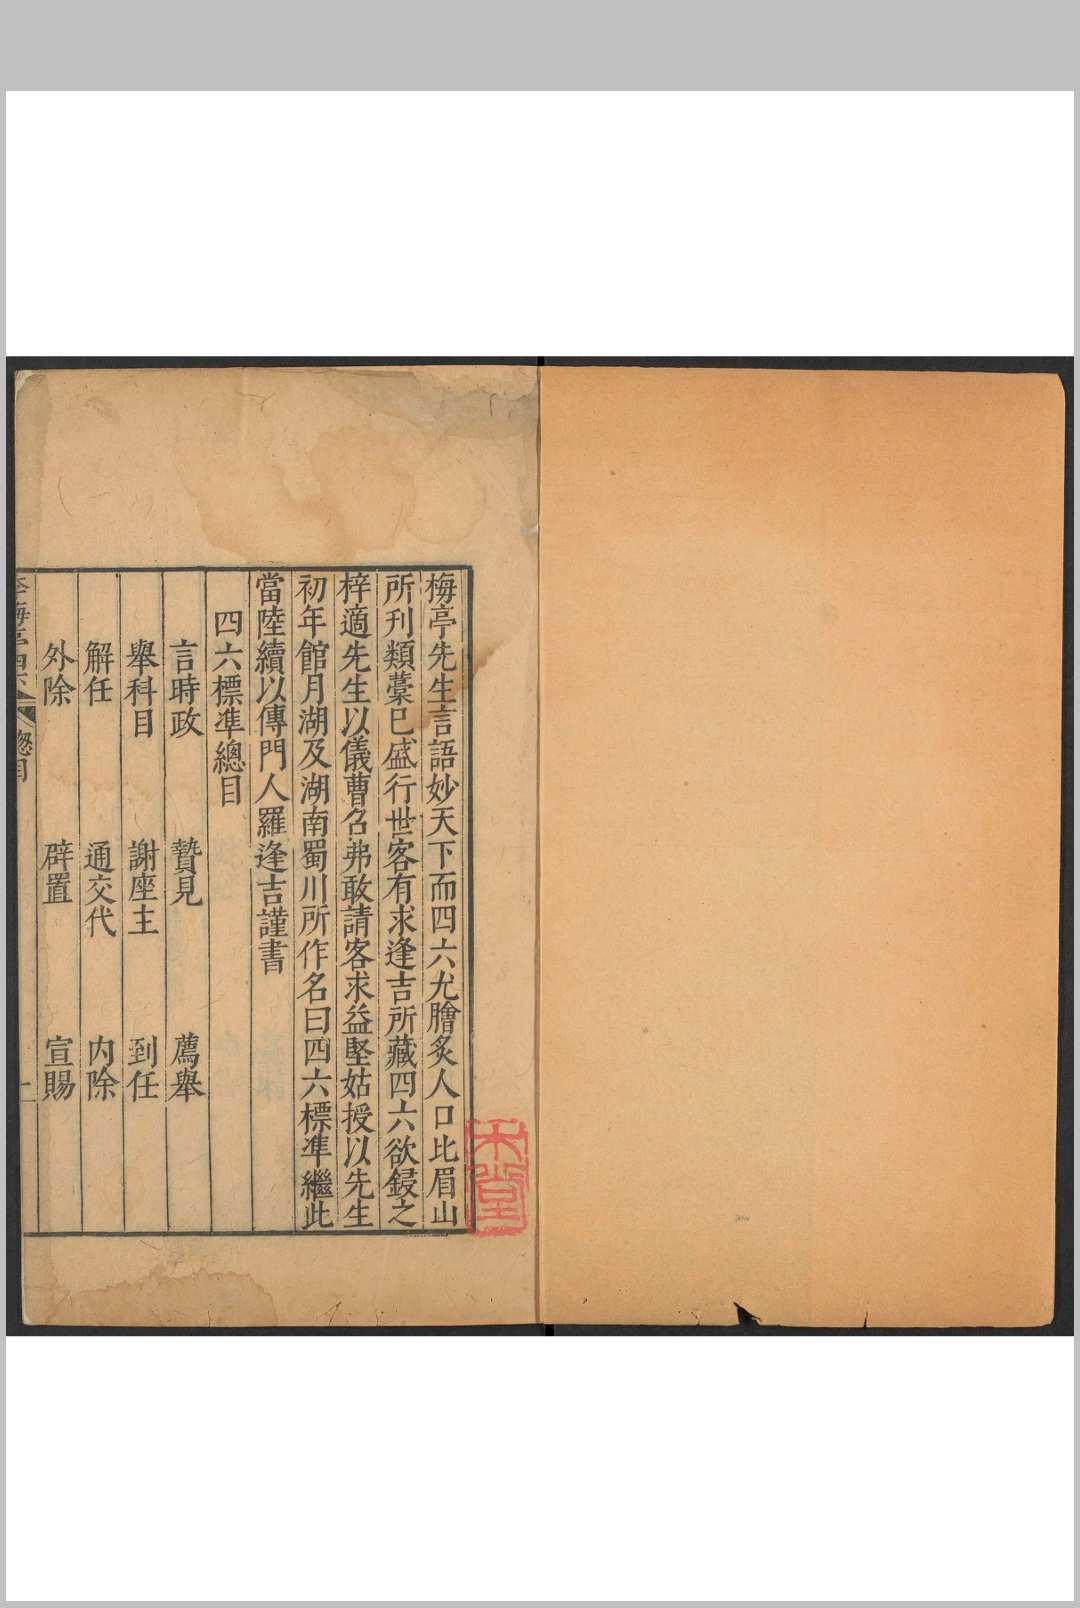 梅亭先生言語妙天下而四六尤膾炙人口比眉山
所刊類藁已盛行世客有求逢吉所藏四六欲鋟之
梓適先生以儀曹召弗敢請客求益堅姑授以先生
初年館月湖及湖南蜀川所作名曰四六標準繼此
當陸續以傳門人羅逢吉謹書
四六標準總目
言時政 贄見 薦舉
舉科目 謝座主 到任
解任 通交代 內除
外除 辟置 宣賜
李梅亭四六 總目